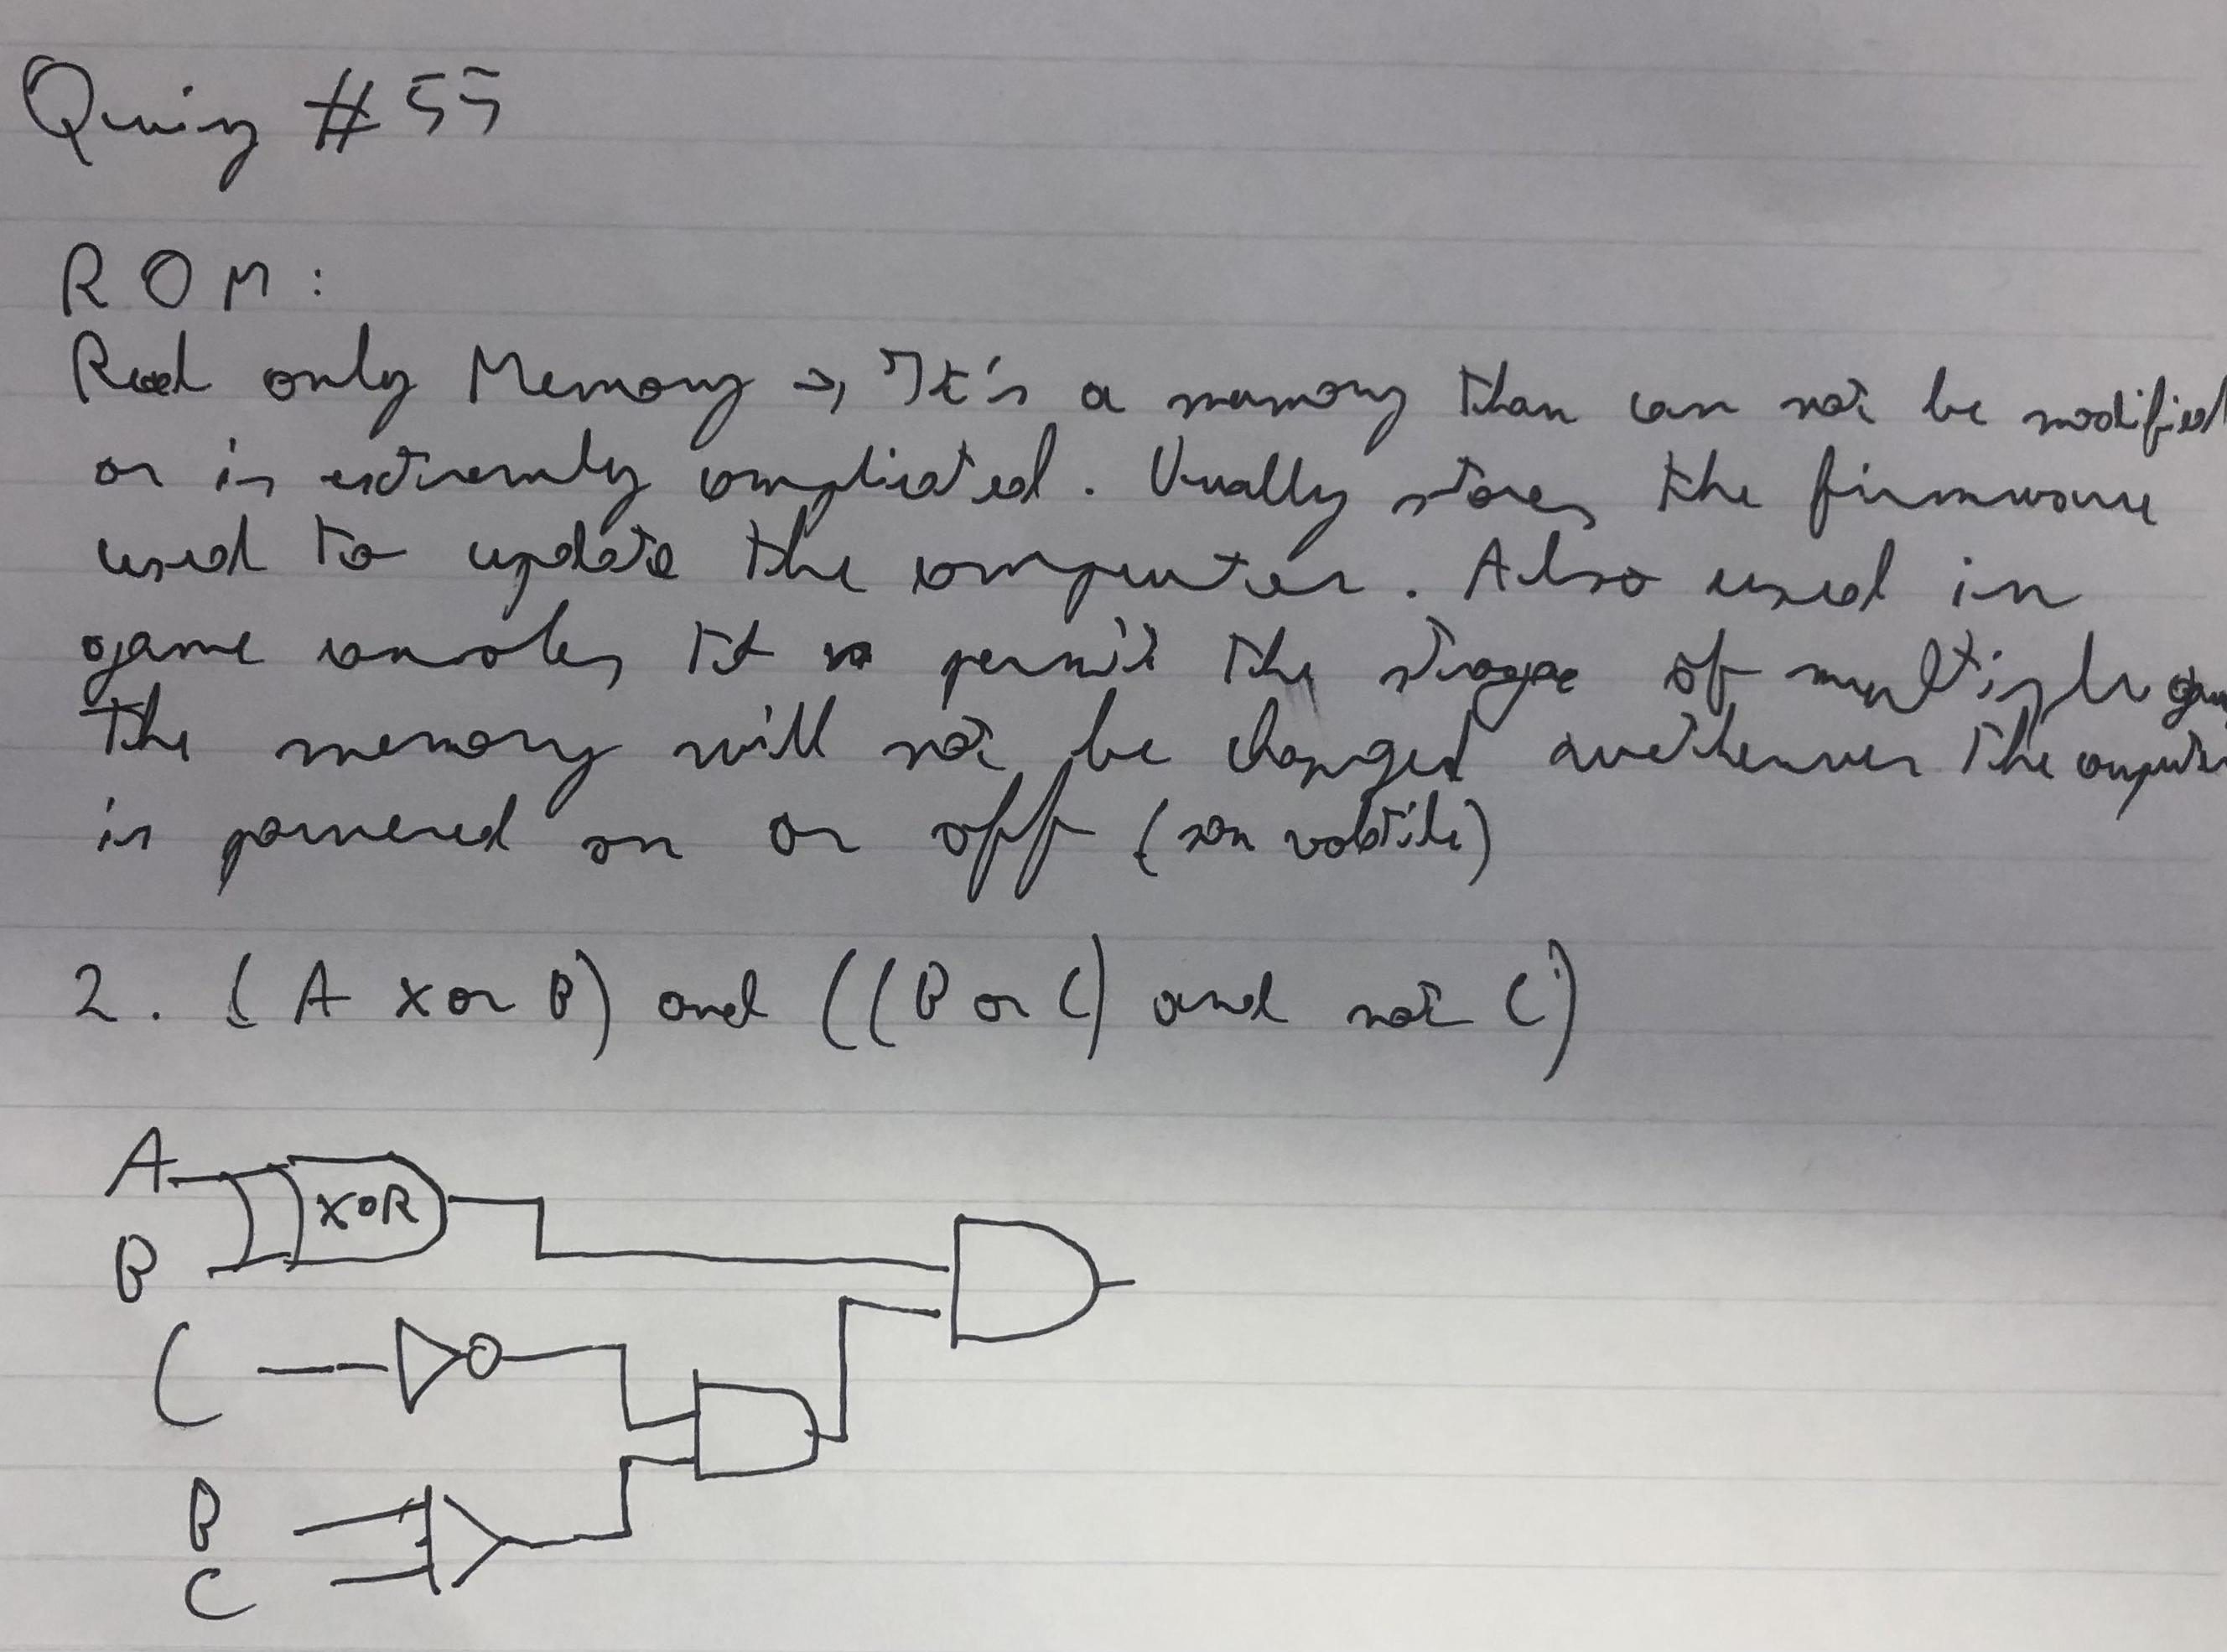 Quiz #55
ROM:
Read only Memory → It's a memory than can not be modified
or is extremly complicated. Usually stores the firmware
used to update the computer. Also used in
game consoles to permit the storage of multiple
The memory will not be changed the computer
is powered on or off (non volatile)
2. (A xor B) and ((B or C) and not C)
A
XOR
B
C
B
C